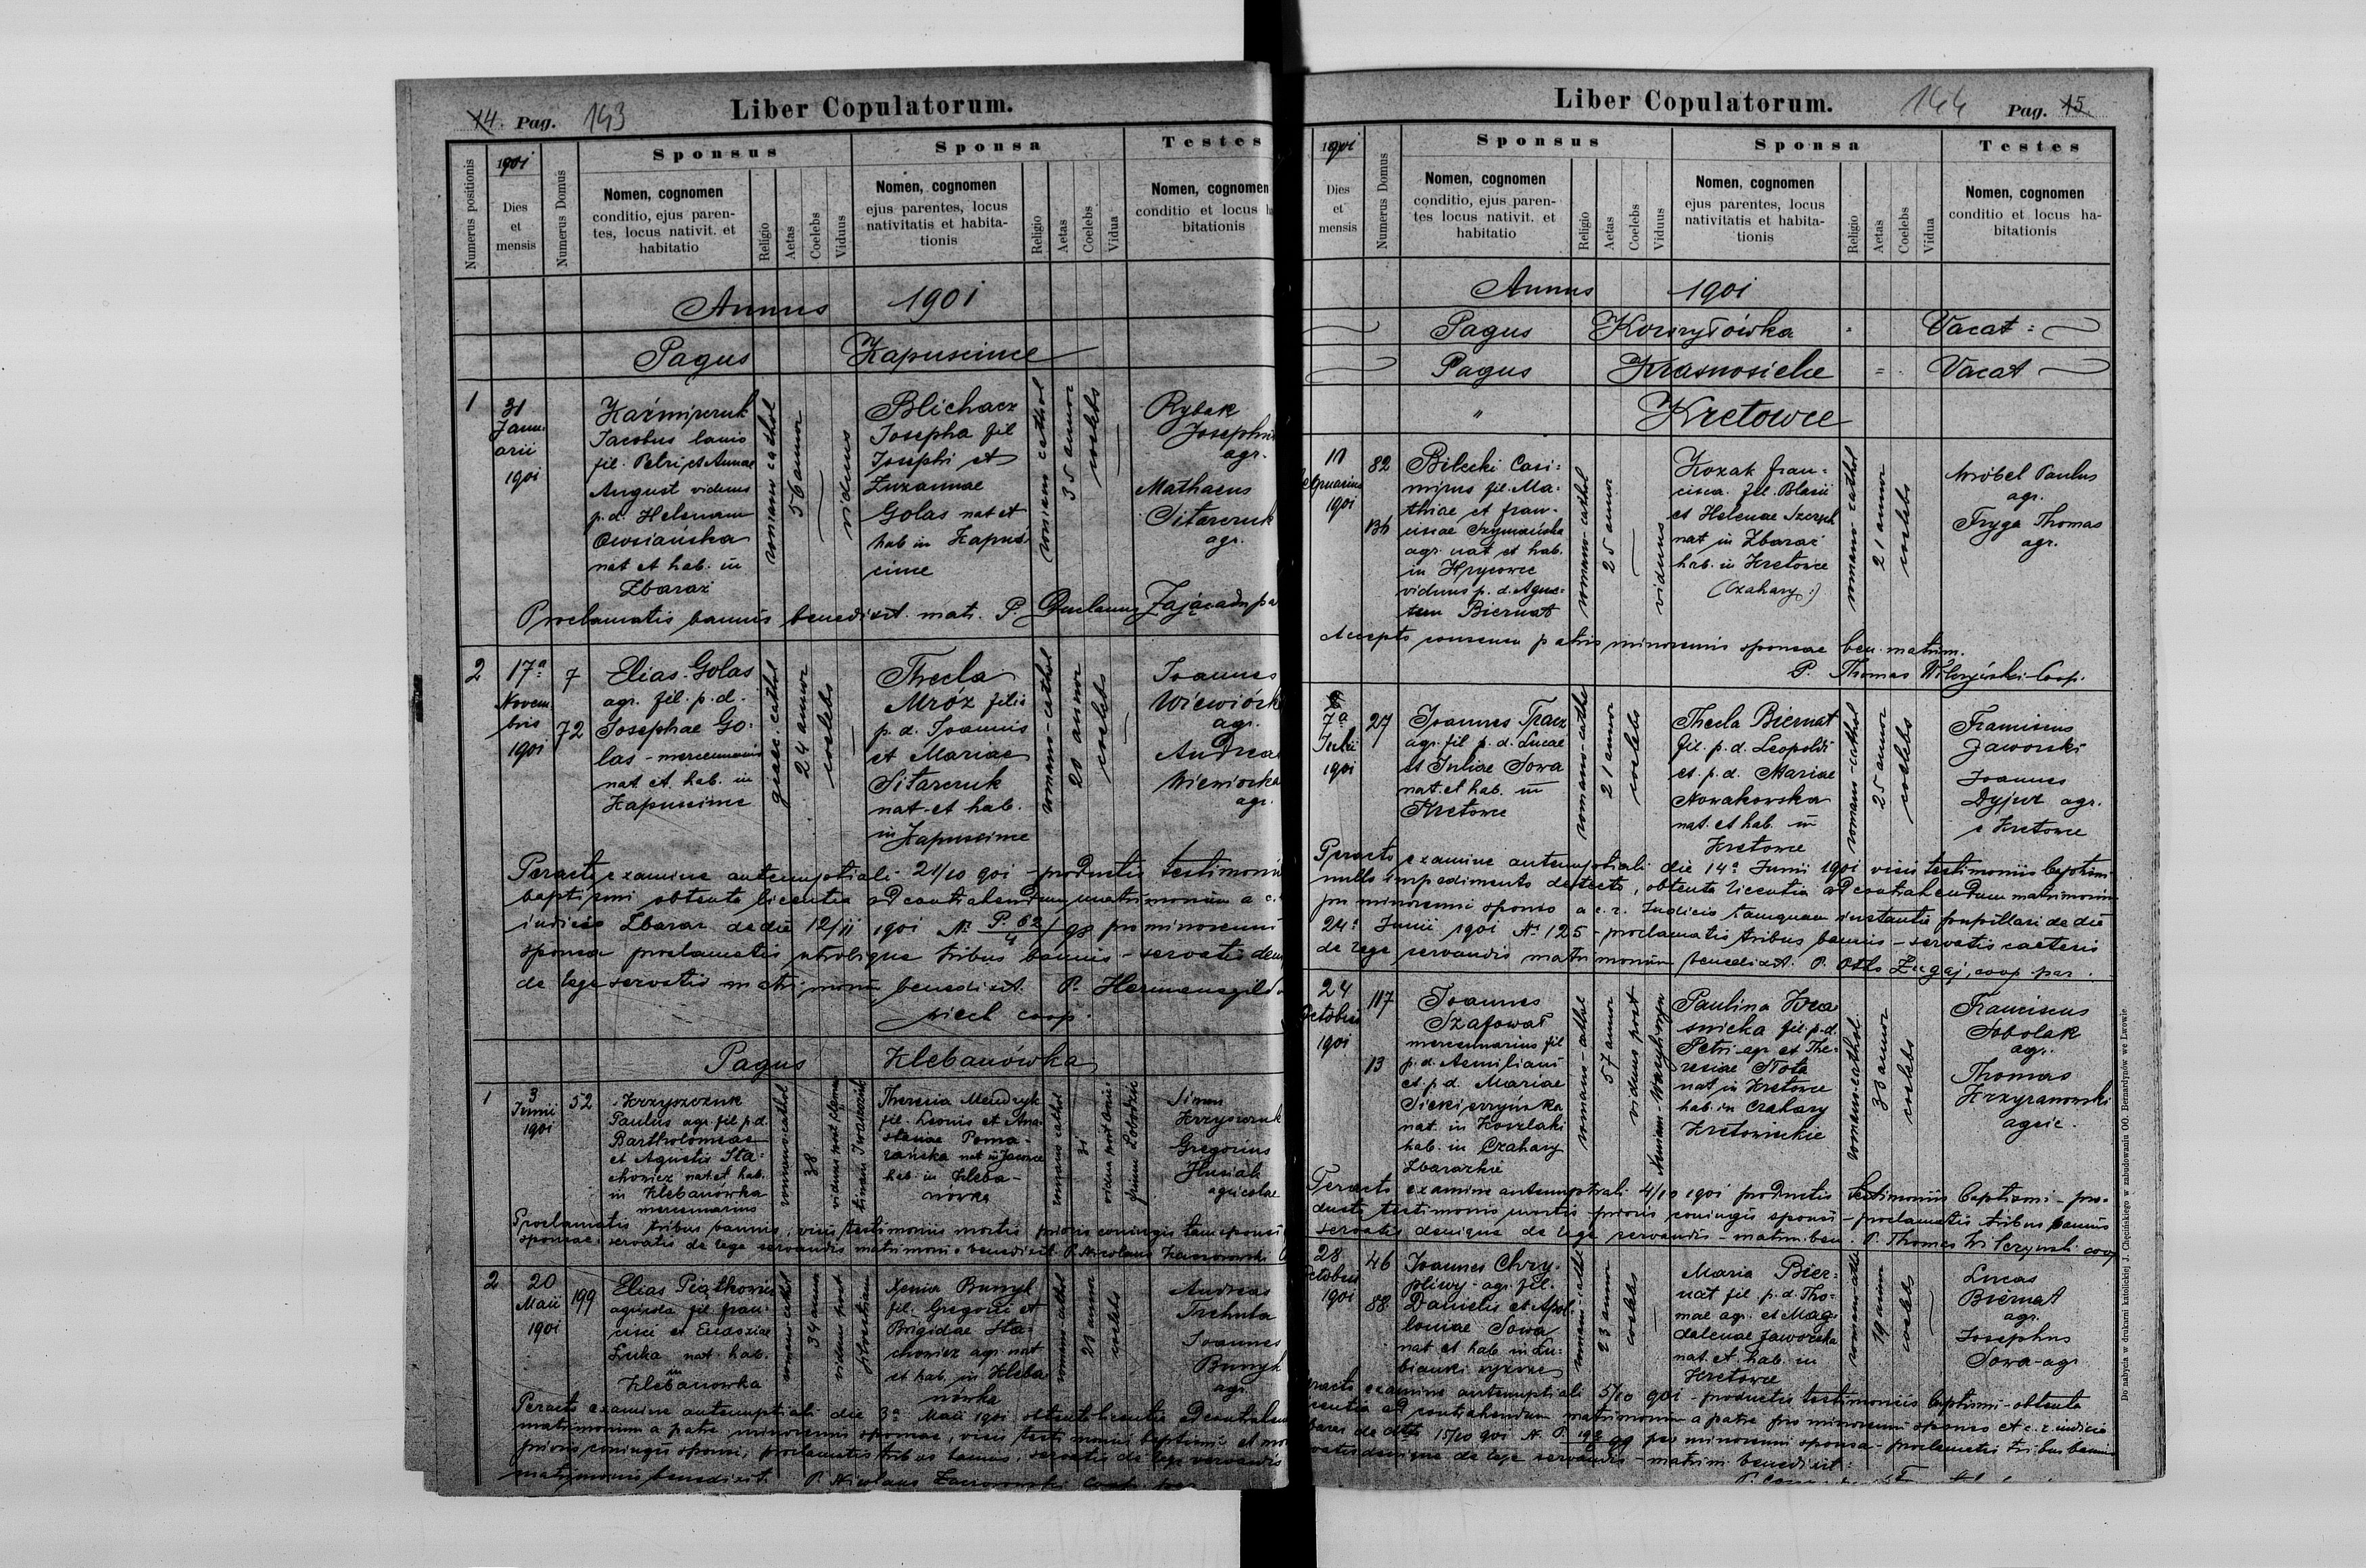 14. Pag. 143 Liber Copulatorum.
Numerus positionis
1901
Dies
et
mensis
Numerus Domus
Sponsus
Nomen, cognomen
conditio, ejus paren-
tes, locus nativit. et
habitatio
Religio
Aetas
Coelebs
Viduus
Sponsa
Nomen, cognomen
ejus parentes, locus
nativitatis et habita-
tionis
Religio
Aetas
Coelebs
Vidua
Testes
Nomen, cognomen
conditio et locus ha
bitationis
Annus 1901
Pagus Kapuscince
1
31
Janu
arii
1901
Kaźmiperuk
Jacobus lanio
fil. Petri et Annae
August viduus
p.d. Helenam
Owsianska
nat et hab. in
Zbaraż
romano cathol
56 annor
viduus
Blicharz
Josepha fil
Josephi et
Zuzannae
Golas nat et
hab in Kapus
cince
romano cathol
35 annor
coelebs
Rybak
Josephus
agr.
Mathaeus
Sitarczuk
agr.
Proclamatis bannis benedixit. matr. P. Zając
2
17ª
Novem
bris
1901
7
72
Elias Golas
agr. fil. p.d.
Josephae Go:
las - mercenarius
nat et hab. in
Kapuscince
graec. cathol
24 annor
coelebs
Thecla
Mróz filia
p.d. Joannis
et Mariae
Sitarczuk
nat. et hab.
in Kapuscince
romano-cathol
20 annor
coelebs
Joannes
Wiewiórk
agr.
Andreas
Wiewiorka
agr.
Peracto examine antenuptiali 21/10 901 - productis testimoniis
baptismi obtenta licentia ad contrahendum matrimonium a c.
iudicio Zbaraz de die 12/11 1901 № P. 62/4 / 98 pro minorenni
sponsa proclamatis utrobique tribus bannis - servatis
de lege servatis matrimonium benedixit P. Hermenegild
siech coop.
Pagus Klebanówka
1
3
Junii
1901
52
Krzyszczuk
Paulus agr. fil p.d.
Bartholomeae
et Agnetis Sta:
chowicz nat. et hab.
in Klebanówka
mercenarius
romano cathol
38
Theresia Mendzyk
fil. Leonis et Ana
stasiae Poma-
rańska nat in
hab in Kleba-
nówka
romano cathol
31
Simon
Krzyszczuk
Gregorius
Husiak
agricolae
Proclamatis tribus bannis, visis testimoniis mortis prioris coniugis tam sponsi
sponsae servatis de lege servandis matrimonio benedixit P. Nicolaus
2
20
Maii
1901
199
Elias Piątkowski
agricola fil. fran-
cisci et Eudoxiae
Luka nat. hab.
in
Klebanowka
romano cathol
34 annor
viduus post
Xenia Bunyk
fil. Gregorii et
Brigidae Sta-
chowicz agr. nat
et hab. in Kleba
nówka
romano cathol
20 annor
coelebs
Andreas
Trehuba
Joannes
Bunyk
agr.
Peracto examine antenuptiali die 3ª Maii 1901 obtenta licentia ad contrahen
matrimonium a patre minorennis sponsae, visis testimoniis baptismi et mor
prioris coniugis sponsi, proclamatis tribus bannis, servatis de lege servandis
matrimonio benedixit. P. Nicolaus
Liber Copulatorum. 144 Pag. 15.
1901
Dies
et
mensis
Numerus Domus
Sponsus
Nomen, cognomen
conditio, ejus paren-
tes locus nativit. et
habitatio
Religio
Aetas
Coelebs
Viduus
Sponsa
Nomen, cognomen
ejus parentes, locus
nativitatis et habita-
tionis
Religio
Aetas
Coelebs
Vidua
Testes
Nomen, cognomen
conditio et locus ha-
bitationis
Annus 1901
Pagus Koszyłówka " Vacat =
Pagus Krasnosielce = Vacat
" Kretowce
1901
82
Bilecki Casi:
mirus fil. Ma-
thiae et fran-
ciscae Szymańska
agr. nat et hab.
in Hrycowce
viduus p.d. Agne-
tem Biernat
romano-cathol
25 annor
viduus
Kozak fran-
cisca fil. Blasii
et Helenae Szerszeń
nat in Zbaraż
hab. in Kretowce
(Czahary:)
romano-cathol
21 annor
coelebs
Wróbel Paulus
agr.
Fryga Thomas
agr.
Accepto consensu patris minorennis sponsae ben. matrim.
P. Thomas Wilczyński Coop.
7ª
Julii
1901
27
Joannes Tracz
agr. fil p.d. Lucae
et Juliae Sowa
nat. et hab. in
Kretowce
21 annor
coelebs
Thecla Biernat
fil. p.d. Leopoldi
et p.d. Mariae
Nowakowska
nat. et hab. in
Kretowce
romano-cathol
25 annor
coelebs
Franciscus
Jaworski
Joannes
Dyjur agr.
e Kretowce
Peracto examine antenuptiali die 14ª Junii 1901 visis testimoniis baptismi
nullo impedimento detecto, obtenta licentia ad contrahendum matrimonium
pro minorenni sponso a c. r. Iudicio tamquam instantia pupillari de die
24ª Junii 1901 № 125 - proclamatis tribus bannis - servatis caeteris
de lege servandis matrimonium benedixit. P. Otto Zugaj, coop. par.
24
Octobris
1901
117
13
Joannes
Szafował
mercennarius fil
p.d. Aemiliani
et p.d. Mariae
Siekierzyńska
nat. in Koszlaki
hab. in Czahary
Zbarazkie
57 annor
viduus post
Paulina Kra
snicka fil p.d.
Petri agr et The-
resiae Flota
nat in Kretowce
hab. in Czahary
Kretowieckie
romano-cathol
30 annor
coelebs
Franciscus
Sobolak
agr.
Thomas
Krzyzanowski
agric.
Peracto examine antenuptiali 4/10 1901 productis testimoniis baptismi - pro-
ducto testimonio mortis prioris coniugis sponsi - proclamatis tribus bannis
servatis denique de lege servandis - matrim. ben. P. Thomas Wilczynski coop
28
Octobris
1901
46
88
Joannes Chry-
pliwy - agr. fil.
Danielis et Apol
loniae Sowa
nat et hab. in Lu-
bianki wyższe
23 annor
coelebs
Maria Bier-
nat fil p.d. Tho-
mae agr. et Mag-
dalenae Jaworska
nat. et hab. in
Kretowce
19 annor
coelebs
Lucas
Biernat
agr.
Josephus
Sowa - agr
Peracto examine antenuptiali 5/10 901 - productis testimoniis baptismi - obtenta
licentia ad contrahendum matrimonium a patre pro minorenni sponso et c. r. iudicio
de dtto 15/10 901 № P. pro minorenni sponsa - proclamatis tribus bannis
servatis denique de lege servandis - matrim. benedixit:
Do nabycia w drukarni katolickiej J. Chęcińskiego w zabudowaniu OO. Bernardynów we Lwowie.